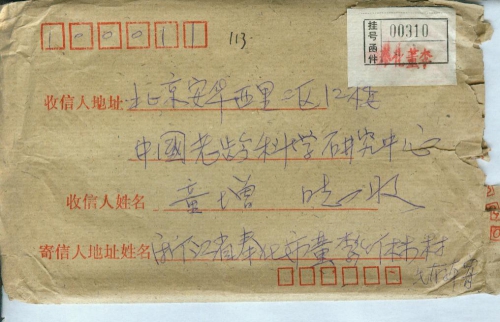 100011 113
挂号函件
00310
奉化董李
收信人地址 北京安华西里 区12楼
中國老龄科学研究中心
收信人姓名 童增 收
寄信人地址姓名 浙江省奉化市董李 林村